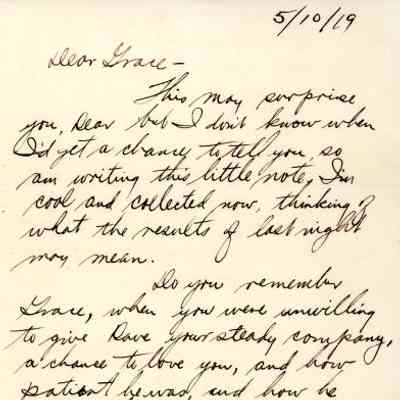 5/10/19
Dear Grace -
This may surprise
you, Dear but I don't know when
I'd get a chance to tell you, so
am writing this little note, I'm
cool and collected now, thinking of
what the results of last night
may mean.
Do you remember
Grace, when you were unwilling
to give Dave your steady company,
a chance to love you, and how
patient he was, and how he